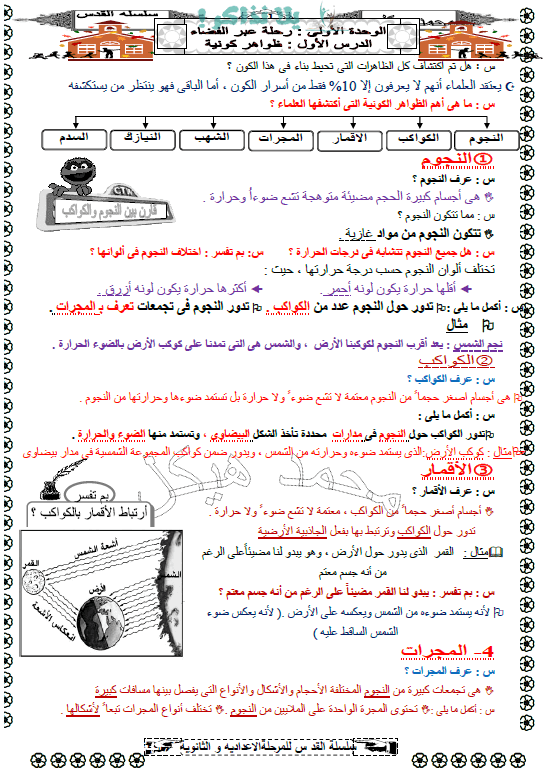 سلسلة القدس
بلا شذاكر!
الوحدة الأولى : رحلة عبر الفضاء
الدرس الأول : ظواهر كونية
س : هل تم اكتشاف كل الظاهرات التى تحيط بناء فى هذا الكون ؟
يعتقد العلماء أنهم لا يعرفون إلا 10% فقط من أسرار الكون ، أما الباقى فهو ينتظر من يستكشفه
س : ما هى أهم الظواهر الكونية التى أكتشفها العلماء ؟
النجوم الكواكب الاقمار المجرات الشهب النيازك السدم
①النجوم
س : عرف النجوم ؟
هى أجسام كبيرة الحجم مضيئة متوهجة تشع ضوءاً وحرارة .
س : مما تتكون النجوم ؟
تتكون النجوم من مواد غازية .
قارن بين النجوم والكواكب
س : هل جميع النجوم تتشابه فى درجات الحرارة ؟ س: بم تفسر : اختلاف النجوم فى ألوانها ؟
تختلف ألوان النجوم حسب درجة حرارتها ، حيث :
أقلها حرارة يكون لونه أحمر . أكثرها حرارة يكون لونه أزرق .
س : أكمل ما يلى : تدور حول النجوم عدد من الكواكب . تدور النجوم فى تجمعات تعرف بـ المجرات .
مثال
نجم الشمس : يعد أقرب النجوم لكوكبنا الأرض ، والشمس هى التى تمدنا على كوكب الأرض بالضوء الحرارة .
②الكواكب
س : عرف الكواكب ؟
هى أجسام اصغر حجماً من النجوم معتمة لا تشع ضوءً ولا حرارة بل تستمد ضوءها وحرارتها من النجوم .
س : أكمل ما يلى :
تدور الكواكب حول النجوم فى مدارات محددة تأخذ الشكل البيضاوي ، وتستمد منها الضوء والحرارة .
مثال : كوكب الأرض الذى يستمد ضوءه وحرارته من الشمس ، ويدور ضمن كواكب المجموعة الشمسية فى مدار بيضاوى
③الأقمار
محمد هيكل
س : عرف الأقمار ؟
أجسام أصغر حجماً من الكواكب ، معتمة لا تشع ضوءً ولا حرارة .
تدور حول الكواكب وترتبط بها بفعل الجاذبية الأرضية
بم تفسر
أرتباط الأقمار بالكواكب ؟
مثال : القمر الذى يدور حول الأرض ، وهو يبدو لنا مضيئاً على الرغم
من أنه جسم معتم
س : بم تفسر : يبدو لنا القمر مضيئاً على الرغم من أنه جسم معتم ؟
لأنه يستمد ضوءه من الشمس ويعكسه على الأرض .( لأنه يعكس ضوء
الشمس الساقط عليه )
القمر
أشعة الشمس
الشمس
الأرض
انعكاس الأشعة
4- المجرات
س : عرف المجرات ؟
هى تجمعات كبيرة من النجوم المختلفة الأحجام والأشكال والأنواع التى يفصل بينها مسافات كبيرة
س : أكمل ما يلى : تحتوى المجرة الواحدة على الملايين من النجوم . تختلف أنواع المجرات تبعاً لأشكالها .
سلسلة القدس للمرحلة الاعدادية و الثانوية